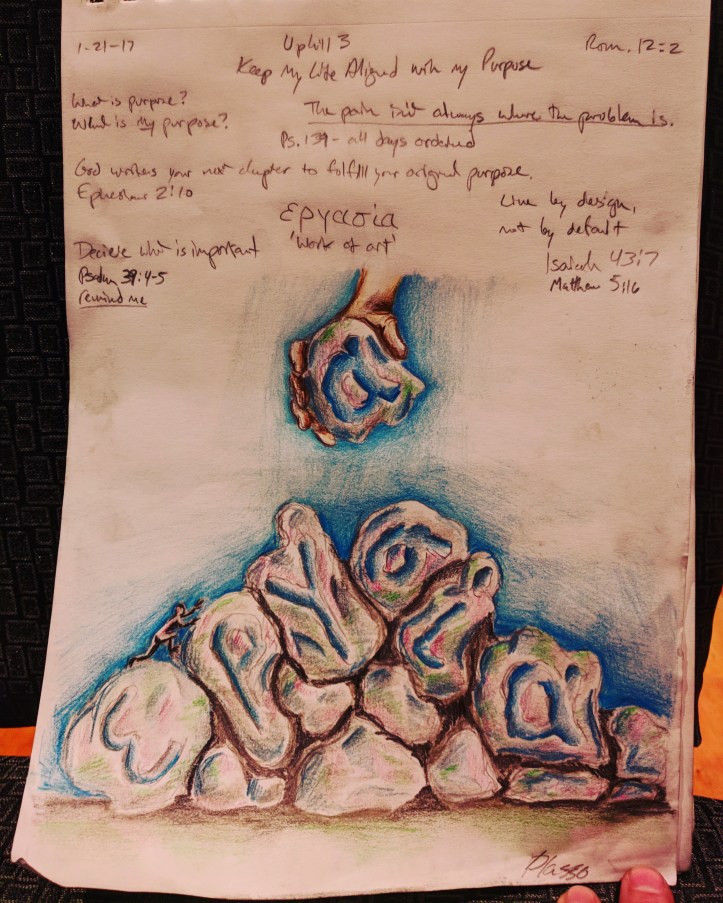 1-21-17
Uphill 3
Rom. 12:2
Keep My Life Aligned with my Purpose
What is purpose?
What is my purpose?
The pain isn't always where the problem is.
Ps. 139 - all days ordered
God writes your next chapter to fulfill your original purpose.
Ephesians 2:10
εργασία
'work of art'
Live by design,
not by default
Decide what is important
Psalm 39:4-5
remind me
Isaiah 43:7
Matthew 5:16
α
ε
ρ
γ
σ
ί
α